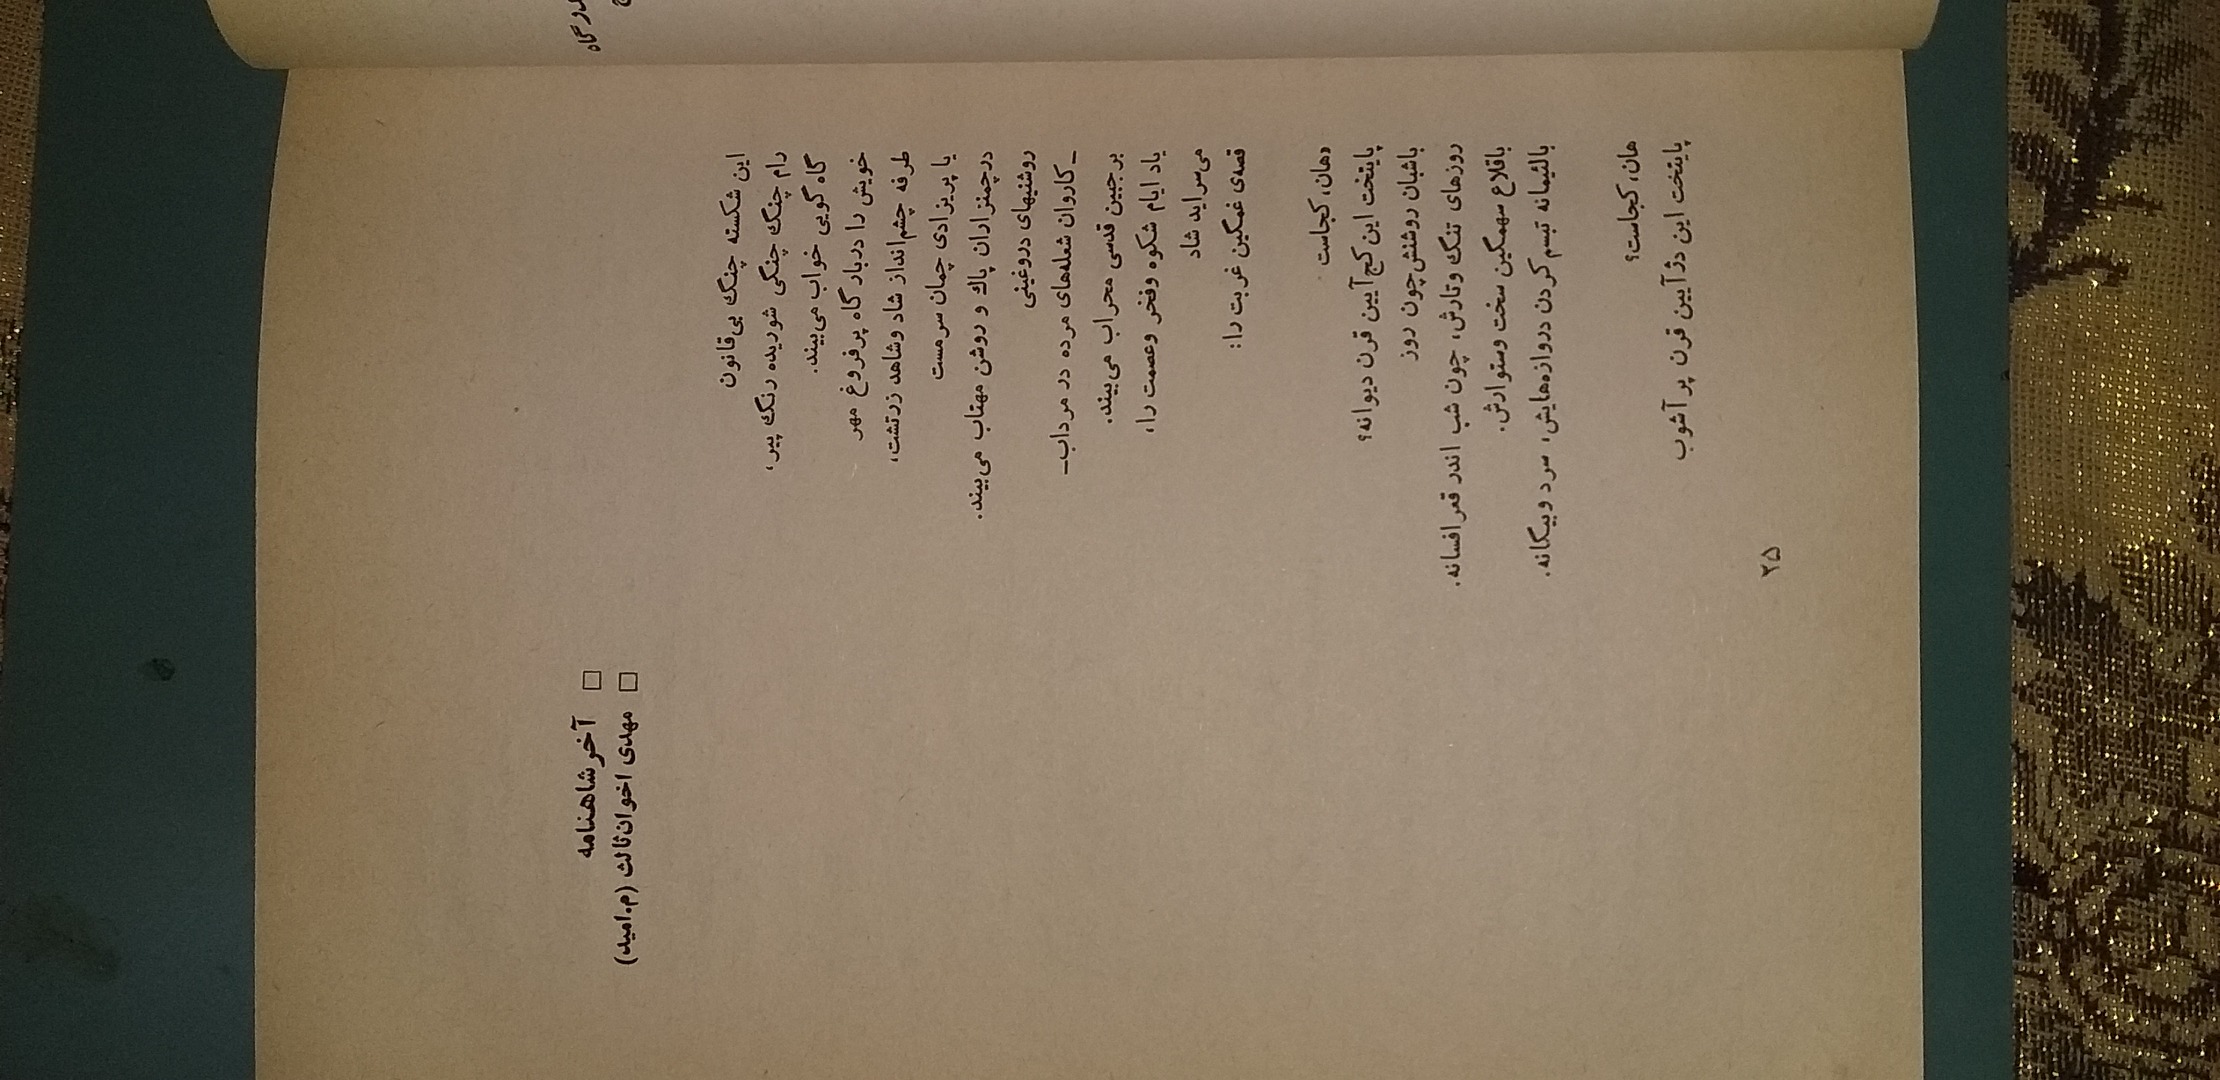 آخر شاهنامه
مهدی اخوان ثالث (م.امید)
این شکسته چنگ بی‌قانون
رام چنگ چنگی شوریده رنگ پیر،
گاه گویی خواب می‌بیند.
خویش را در بارگاه پر فروغ مهر
طرفه چشم‌انداز شاد و شاهد زرتشت،
یا پریزادی چمان سرمست
در چمنزاران پاک و روشن مهتاب می‌بیند.
روشنیهای دروغینی
ـ کاروان شعله‌های مرده در مرداب ـ
بر جبین قدسی محراب می‌بیند.
یاد ایام شکوه و فخر و عصمت را،
می‌سراید شاد
قصه‌ی غمگین غربت را:
«هان، کجاست
پایتخت این کج آیین قرن دیوانه؟
با شبان روشنش چون روز
روزهای تنگ و تارش، چون شب اندر قعر افسانه.
با قلاع سهمگین سخت و ستوارش.
با لئیمانه تبسم کردن دروازه‌هایش، سرد و بیگانه.
هان، کجاست؟
پایتخت این دژ آیین قرن پر آشوب
۲۵